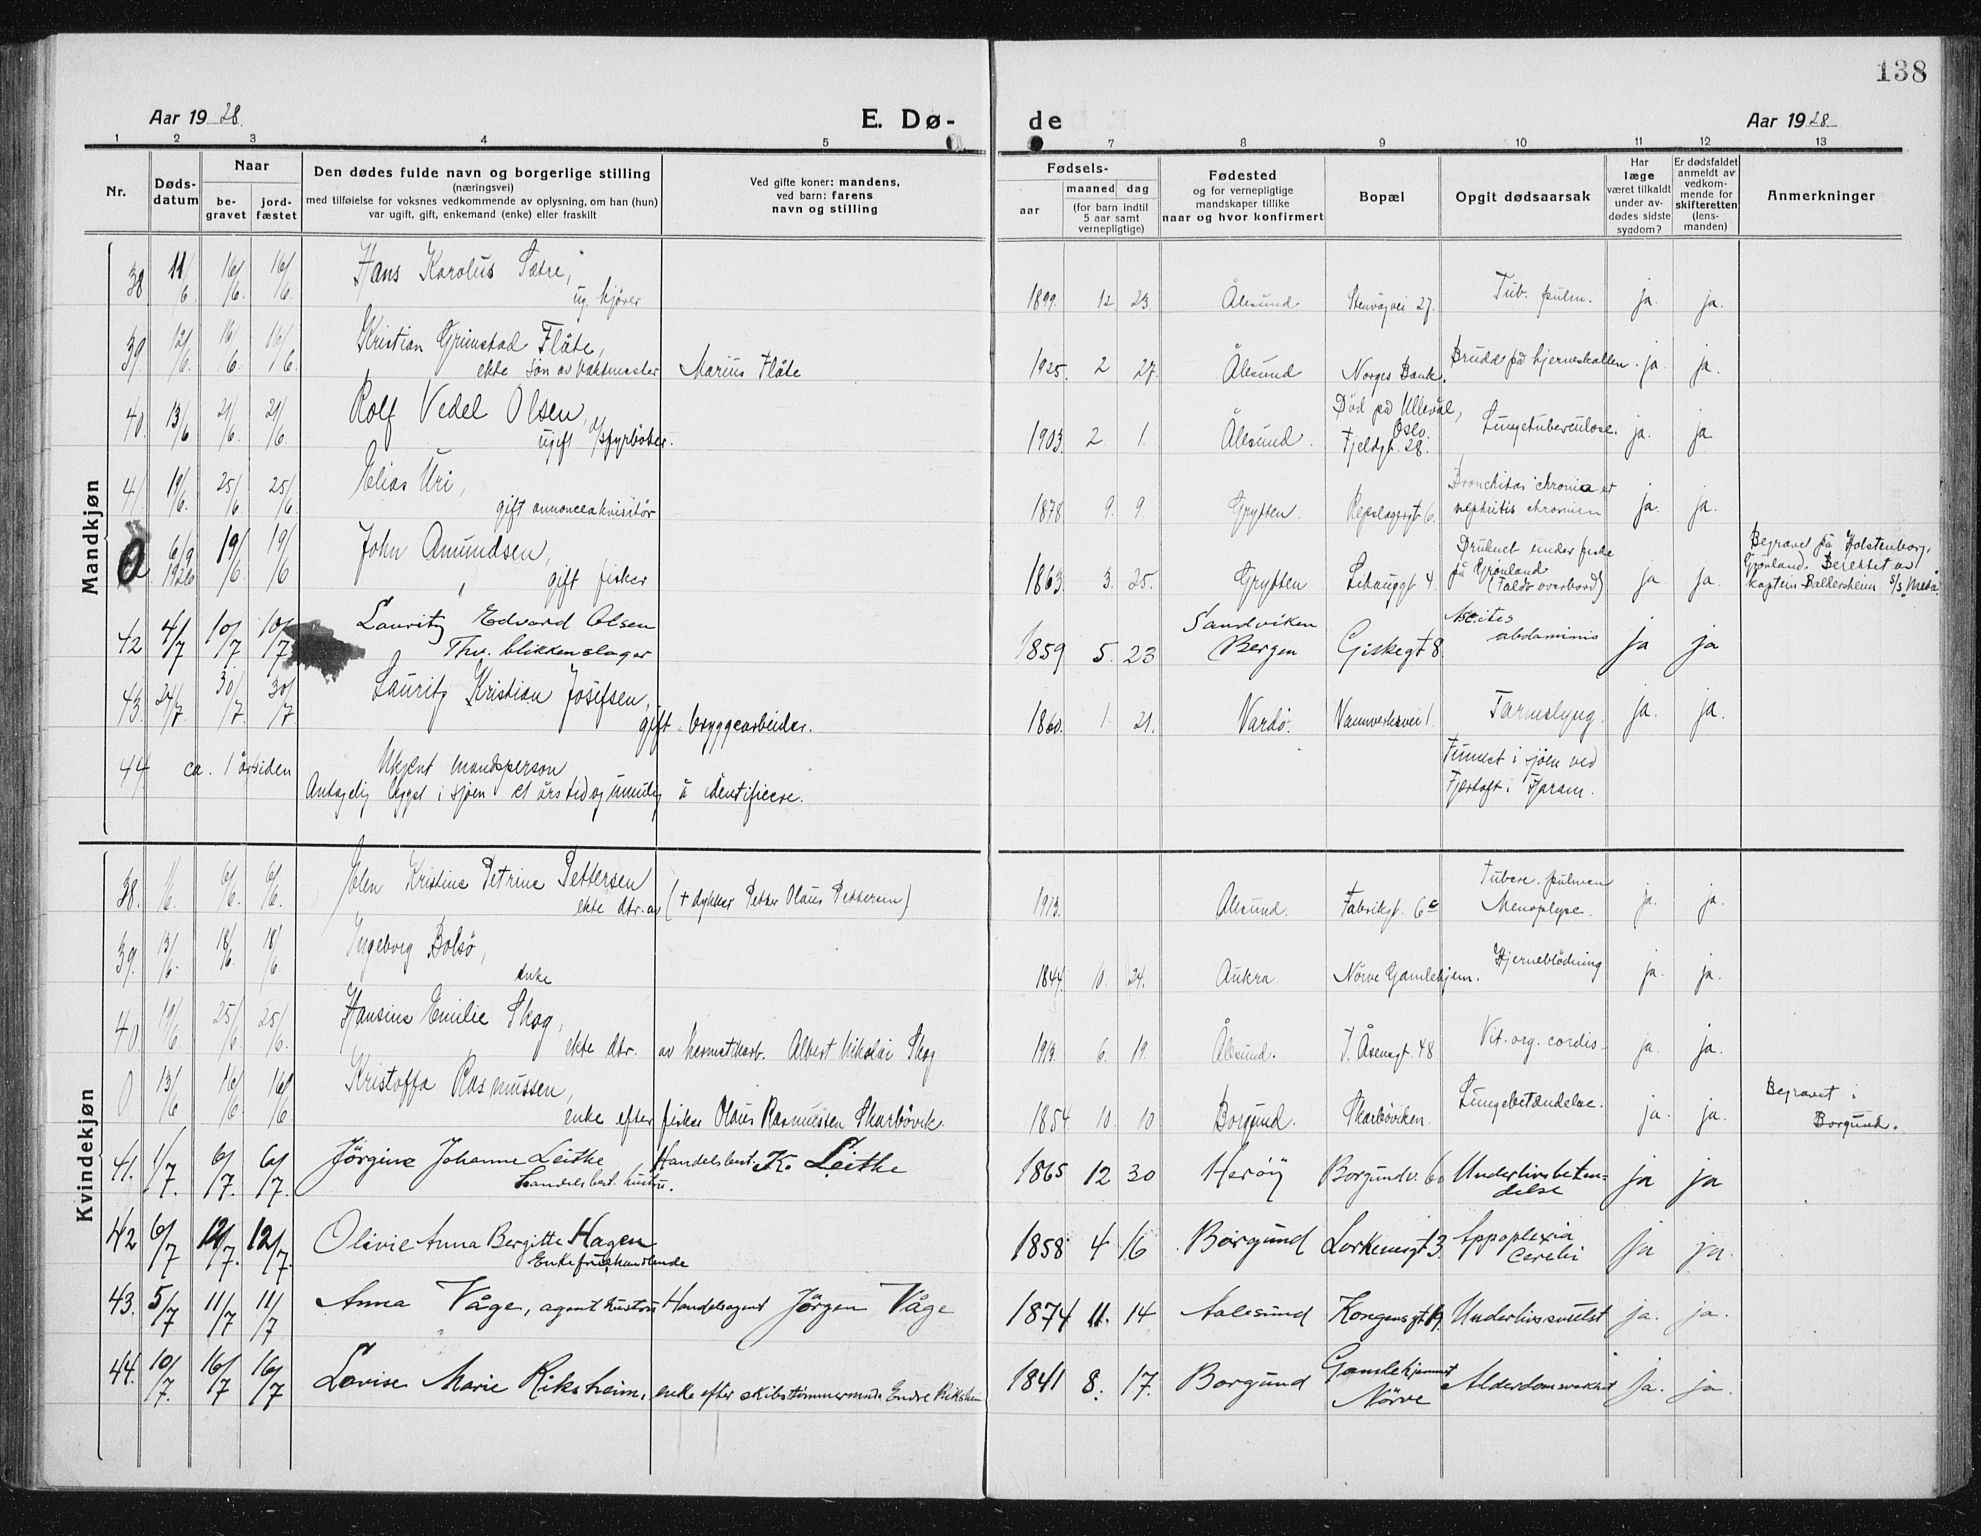 138
Aar 1928. E. Dø- de Aar 1928
1 2 3 4 5 7 8 9 10 11 12 13
Nr. Døds-datum Naar be-gravet jord-fæstet
Den dødes fulde navn og borgerlige stilling
(næringsvei)
med tilføielse for voksnes vedkommende av oplysning, om han (hun)
var ugift, gift, enkemand (enke) eller fraskilt
Ved gifte koner: mandens,
ved barn: farens
navn og stilling
Fødsels-
aar maaned dag
(for barn indtil
5 aar samt
vernepligtige)
Fødested
og for vernepligtige
mandskaper tillike
naar og hvor konfirmert
Bopæl
Opgit dødsaarsak
Har
læge
været tilkaldt
under av-
dødes sidste
sygdom?
Er dødsfaldet
anmeldt av
vedkom-
mende for
skifteretten
(lens-
manden)
Anmerkninger
Mandkjøn
38 11/6. 16/6. 16/6. Hans Karolus Sætre,
ug. kjører 1899. 12. 23. Ålesund Stenvågvei 27. Tub. pulm. ja. ja.
39 12/6. 16/6. 16/6. Kristian Grimstad Flåte,
ekte søn av vaktmester Marius Flåte 1925. 2 27. Ålesund Norges Bank. Brudd på hjerneskallen. ja. ja.
40. 13/6 21/6. 21/6 Rolf Vedel Olsen,
ugift fyrbøter. 1903 2 1. Ålesund. Død på Ullevål,
Oslo.
Fjeldgt. 28. Lungetuberculose. ja. ja
41 19/6. 25/6. 25/6. Elias Uri,
gift annonceakvisitør 1878. 9. 9. Grytten. Repslagergt 6. Bronchitis chronica et
nephritis chronica ja. ja.
0 6/9 1926 19/6. 19/6 John Amundsen,
gift fisker 1863 3. 25. Grytten gt 4 Druknet under fiske
på Grønland
(Faldt overbord) ja ja. Begravet på Holstenborg,
Grønland. Berettet av
kaptein Ballersheim S/S
42 4/7 10/7 10/7 Lauritz Edvard Olsen
Thv. blikkenslager 1859 5. 23 Sandviken
Bergen Giskegt 8 Ascites
abdominis ja ja
43. 24/7. 30/7. 30/7. Lauritz Kristian Josefsen,
gift bryggearbeider. 1860. 1. 21. Vardø. Vannverksvei 1 Tarmslyng. ja. ja.
44 ca. 1 år siden Ukjent mandsperson
Antagelig ligget i sjøen et års tid og umulig å identifisere.
Funnet i sjøen ved
Fjærtoft i Haram.
Kvindekjøn
38. 1/6. 6/6. 6/6. Kristine Petrine Pettersen
ekte dtr. av († dykker Petter Olaus Pettersen) 1913. Ålesund. Fabrikgt. 6c Tuberc. pulmon
ja. ja.
39. 13/6. 18/6. 18/6. Ingeborg Bolsø,
enke 1844. 10. 24. Aukra Nørve Gamlehjem. Hjerneblødning ja. ja.
40. 19/6 25/6. 25/6. Hansine Emilie Skog,
ekte dtr. av hermetikarb. Albert Nikolai Skog 1913. 6. 19. Ålesund. J. Åsensgt. 48 Vit. org. cordis ja. ja.
0 13/6 16/6. 16/6 Kristoffa Rasmussen,
enke efter fisker Olaus Rasmussen Skarbøvik. 1854 10. 10 Borgund. Skarbøviken. Lungebetændelse. ja. ja. Begravet i
Borgund.
41. 1/7. 6/7. 6/7. Jörgine Johanne Leithe
Handelsbest. hustru. Handelsbest. K. Leithe 1865 12 30 Herøy Borgundv. 60 Underlivsbeten-
delse ja ja
42 6/7 12/7. 12/7. Olivie Anna Bergitte Hagen
Enkefru, handlende 1858 4 16 Borgund Lerkenesgt 3. Appoplexia
Cerebri ja ja.
43. 5/7 11/7 11/7 Anna Våge, agent hustru Handelsagent Jörgen Våge 1874 11. 14 Aalesund Kongensgt 19. Underlivssvulst ja. ja.
44. 10/7. 16/7 16/7 Lovise Marie Riksheim, enke efter skibstømmermand Endre Riksheim 1841 8. 17. Borgund Gamlehjemmet
Nörve Alderdomsvakhet ja. ja.